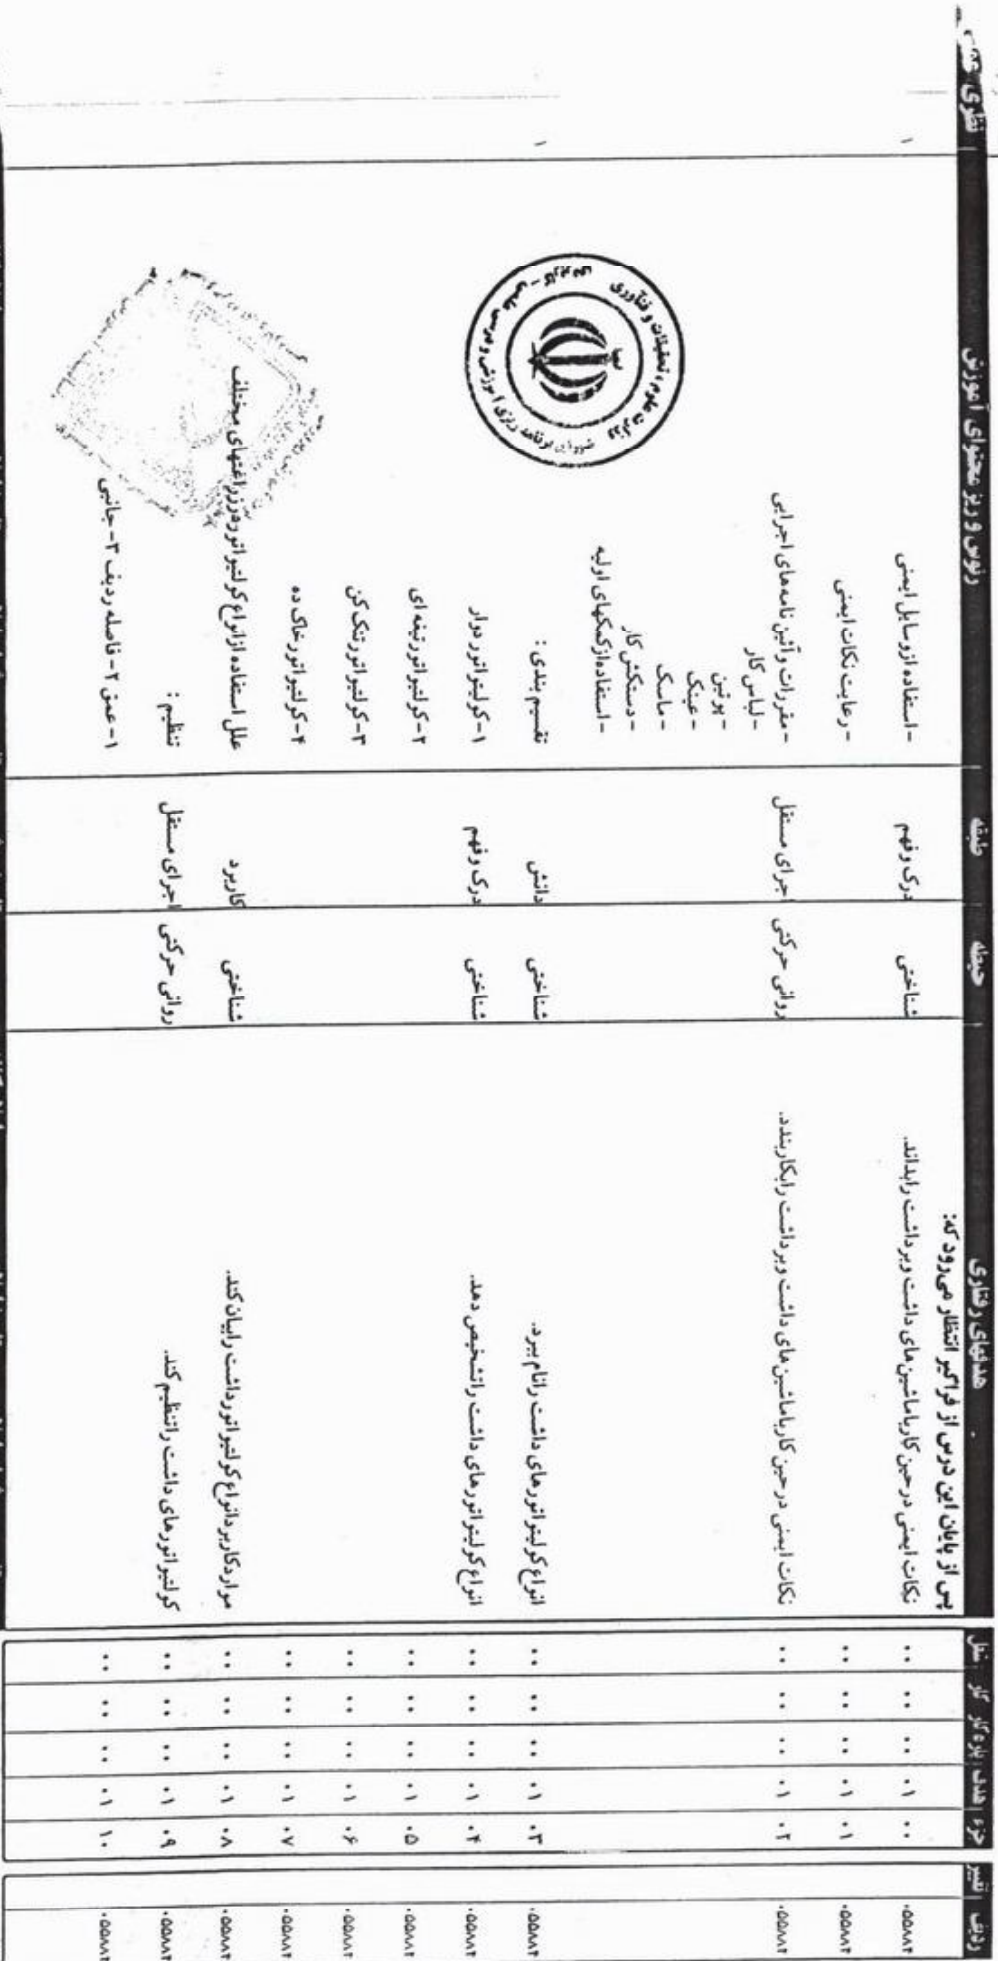 ردیف | تغییر | جزء | هدف | پاره کار | کار | شغل | هدفهای رفتاری | حیطه | طبقه | رئوس و ریز محتوای آموزش | نظری
پس از پایان این درس از فراگیر انتظار می‌رود که:
۰۰ ۰۱ ۰۰ ۰۰ ۰۰ نکات ایمنی در حین کار با ماشین های داشت و برداشت را بداند. شناختی درک و فهم - استفاده از وسایل ایمنی ۱
۰۱ ۰۱ ۰۰ ۰۰ ۰۰ - رعایت نکات ایمنی
۰۲ ۰۱ ۰۰ ۰۰ ۰۰ نکات ایمنی در حین کار با ماشین های داشت و برداشت را بکار بندد. روانی حرکتی اجرای مستقل - مقررات و آئین نامه های اجرایی
- لباس کار
- پوتین
- عینک
- ماسک
- دستکش کار
- استفاده از کمکهای اولیه
۰۳ ۰۱ ۰۰ ۰۰ ۰۰ انواع کولتیواتورهای داشت را نام ببرد. شناختی دانش تقسیم بندی : ۱
۰۴ ۰۱ ۰۰ ۰۰ ۰۰ انواع کولتیواتورهای داشت را تشخیص دهد. شناختی درک و فهم ۱- کولتیواتور دوار
۰۵ ۰۱ ۰۰ ۰۰ ۰۰ ۲- کولتیواتور تیغه ای
۰۶ ۰۱ ۰۰ ۰۰ ۰۰ ۳- کولتیواتور تنک کن
۰۷ ۰۱ ۰۰ ۰۰ ۰۰ ۴- کولتیواتور خاک ده
۰۸ ۰۱ ۰۰ ۰۰ ۰۰ موارد کاربرد انواع کولتیواتور داشت را بیان کند. شناختی کاربرد علل استفاده از انواع کولتیواتور در زراعتهای مختلف
۰۹ ۰۱ ۰۰ ۰۰ ۰۰ کولتیواتورهای داشت را تنظیم کند. روانی حرکتی اجرای مستقل تنظیم :
۱۰ ۰۱ ۰۰ ۰۰ ۰۰ ۱- عمق ۲- فاصله ردیف ۳- جانبی
وزارت علوم، تحقیقات و فنآوری
شورای برنامه ریزی آموزشی و درسی علمی - کاربردی